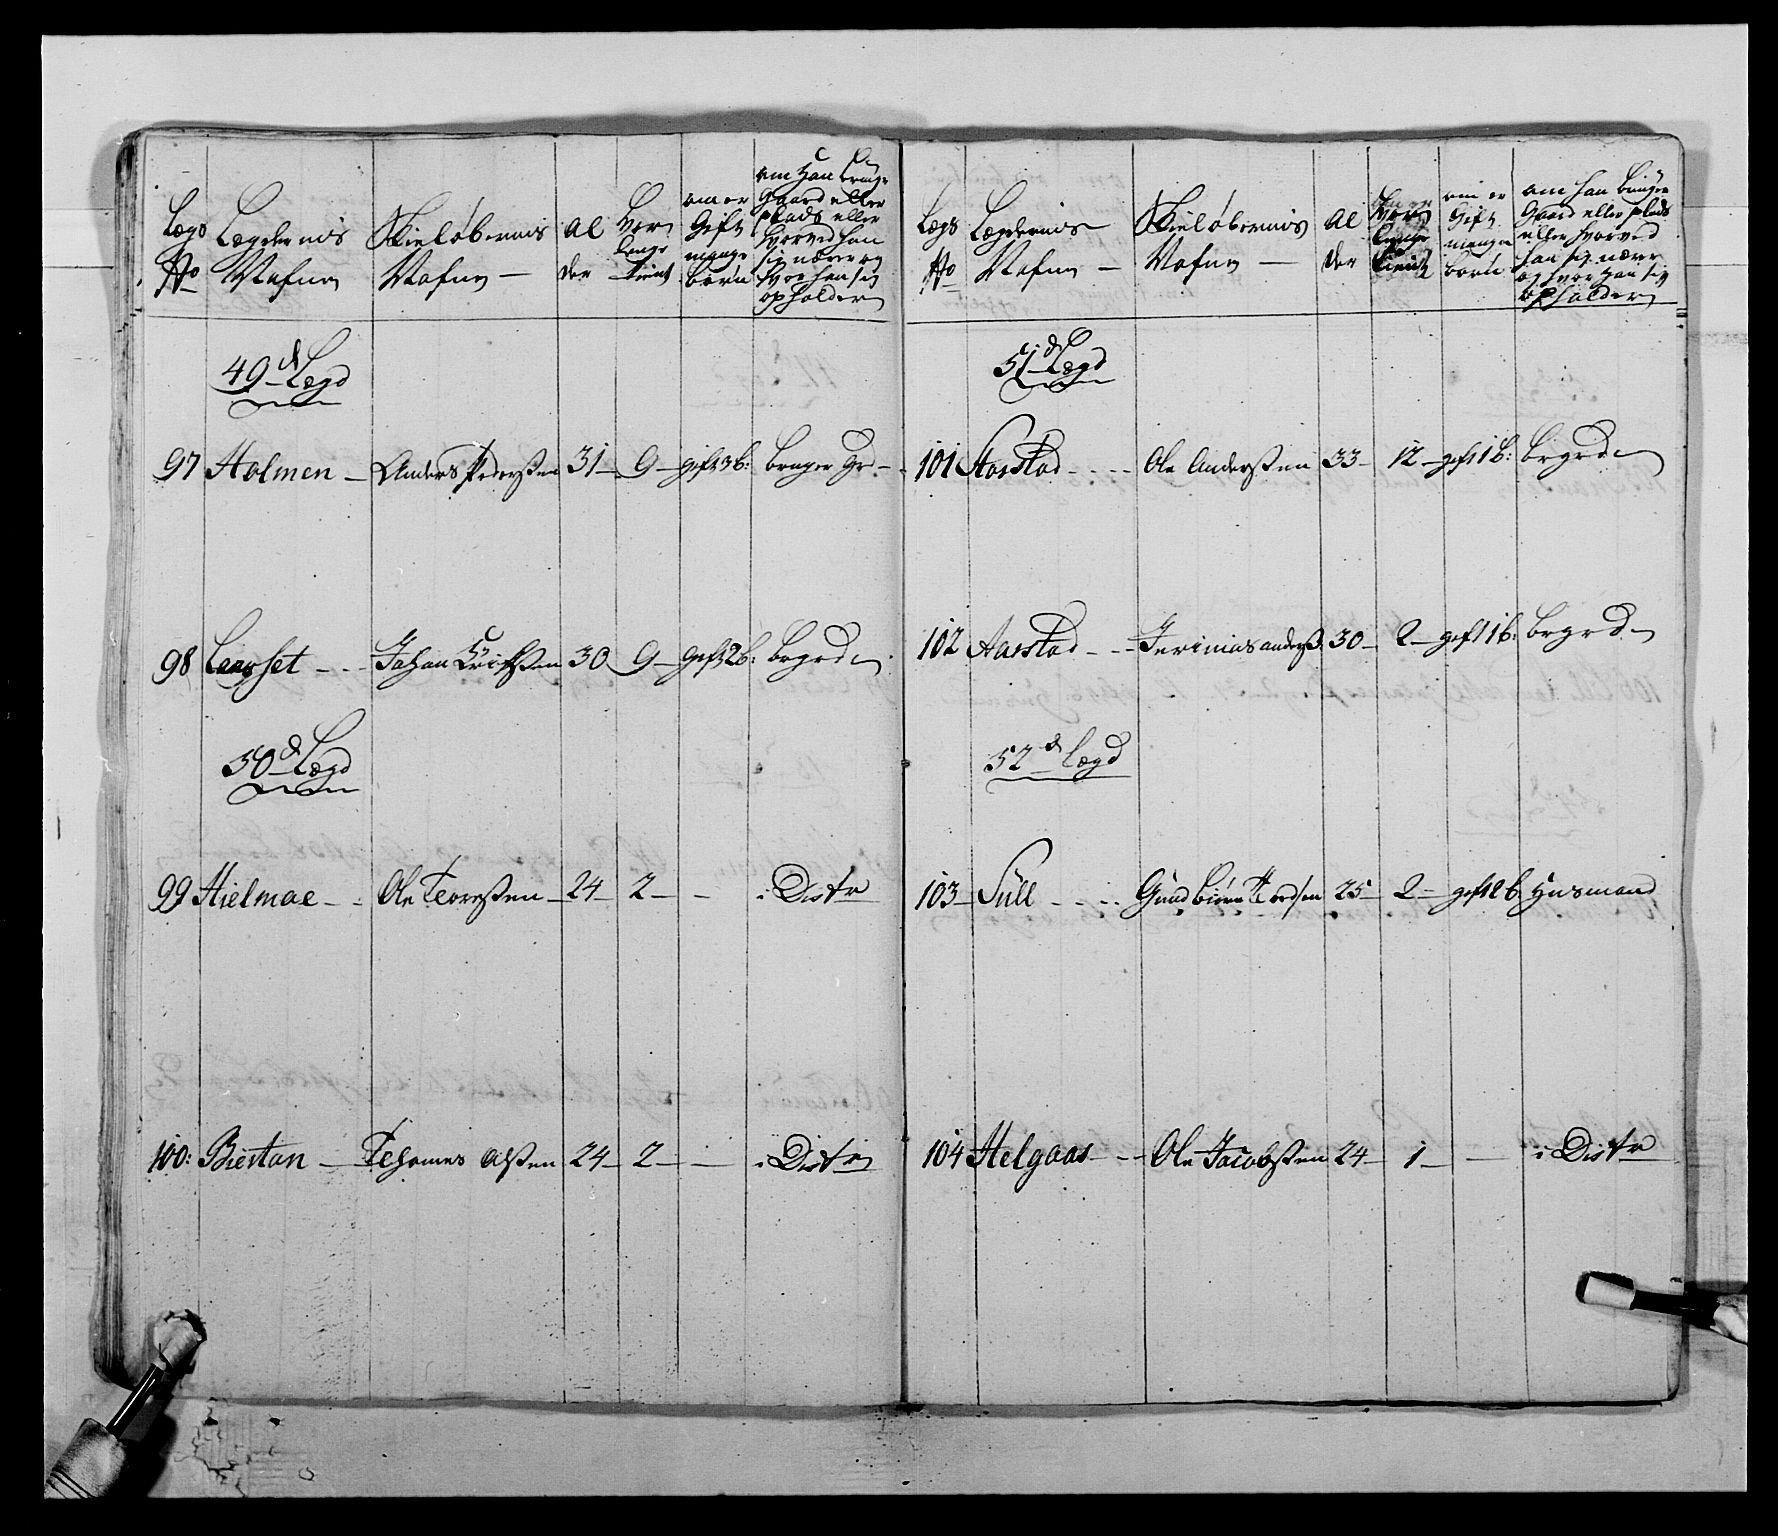 Lægs No
Lægdernis Nafne
Skieløbernis Nafne —
Al der
Hvor lenge tient
om er Gift mange børn
om han bruger Gaard eller plads eller hvorved han sig nærer og hvor han sig opholder
49d Lægd
97 Holmen — Anders Pederßen 31 — 9 — gift 3 b: bruger Gr —
98 Leerset - - - Johan Erichßen 30 9 — gift 2 b: brgrd
50d Lægd
99 Hielmae - - Ole Toreßen — 24 2 — - i Distr
100: Biestan — Tehomes Olßen 24 — 2 — — i Distr
Lægs No
Lægdernis Nafne —
Skieløbernis Nafne —
Al der
Hvor lenge tient
om er Gift mange børn
om han bruger Gaard eller plads eller hvorved han sig nærer og hvor han sig opholder
51d Lægd
101 Aarstad - - - - Ole Anderßen 33 — 12 — gift 1 b: brgrd
102 Aarstad - - - Jerimias anderß: 30 — 2 — gift 1 b: brgrd
52d Lægd
103 — Süll - - - - Gundbiørn Tordsen 25 — 2 — gift 2 b Husmand
104 Helgaas - - - Ole Jacobßen 24 — 1 — — i Distr